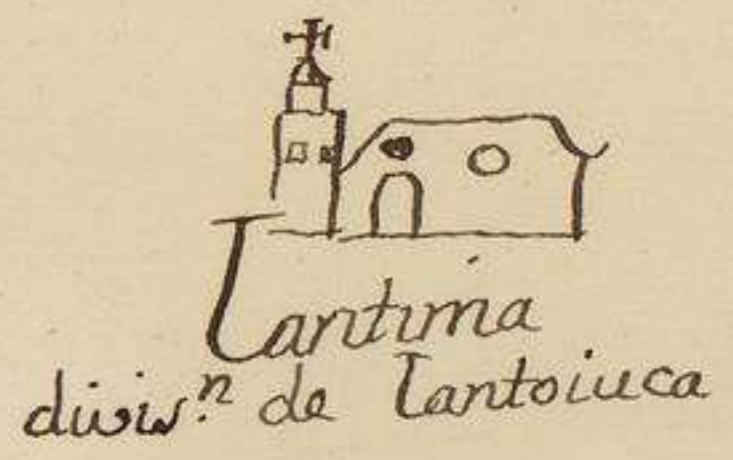 Tantima
divis.n de Tantoiuca